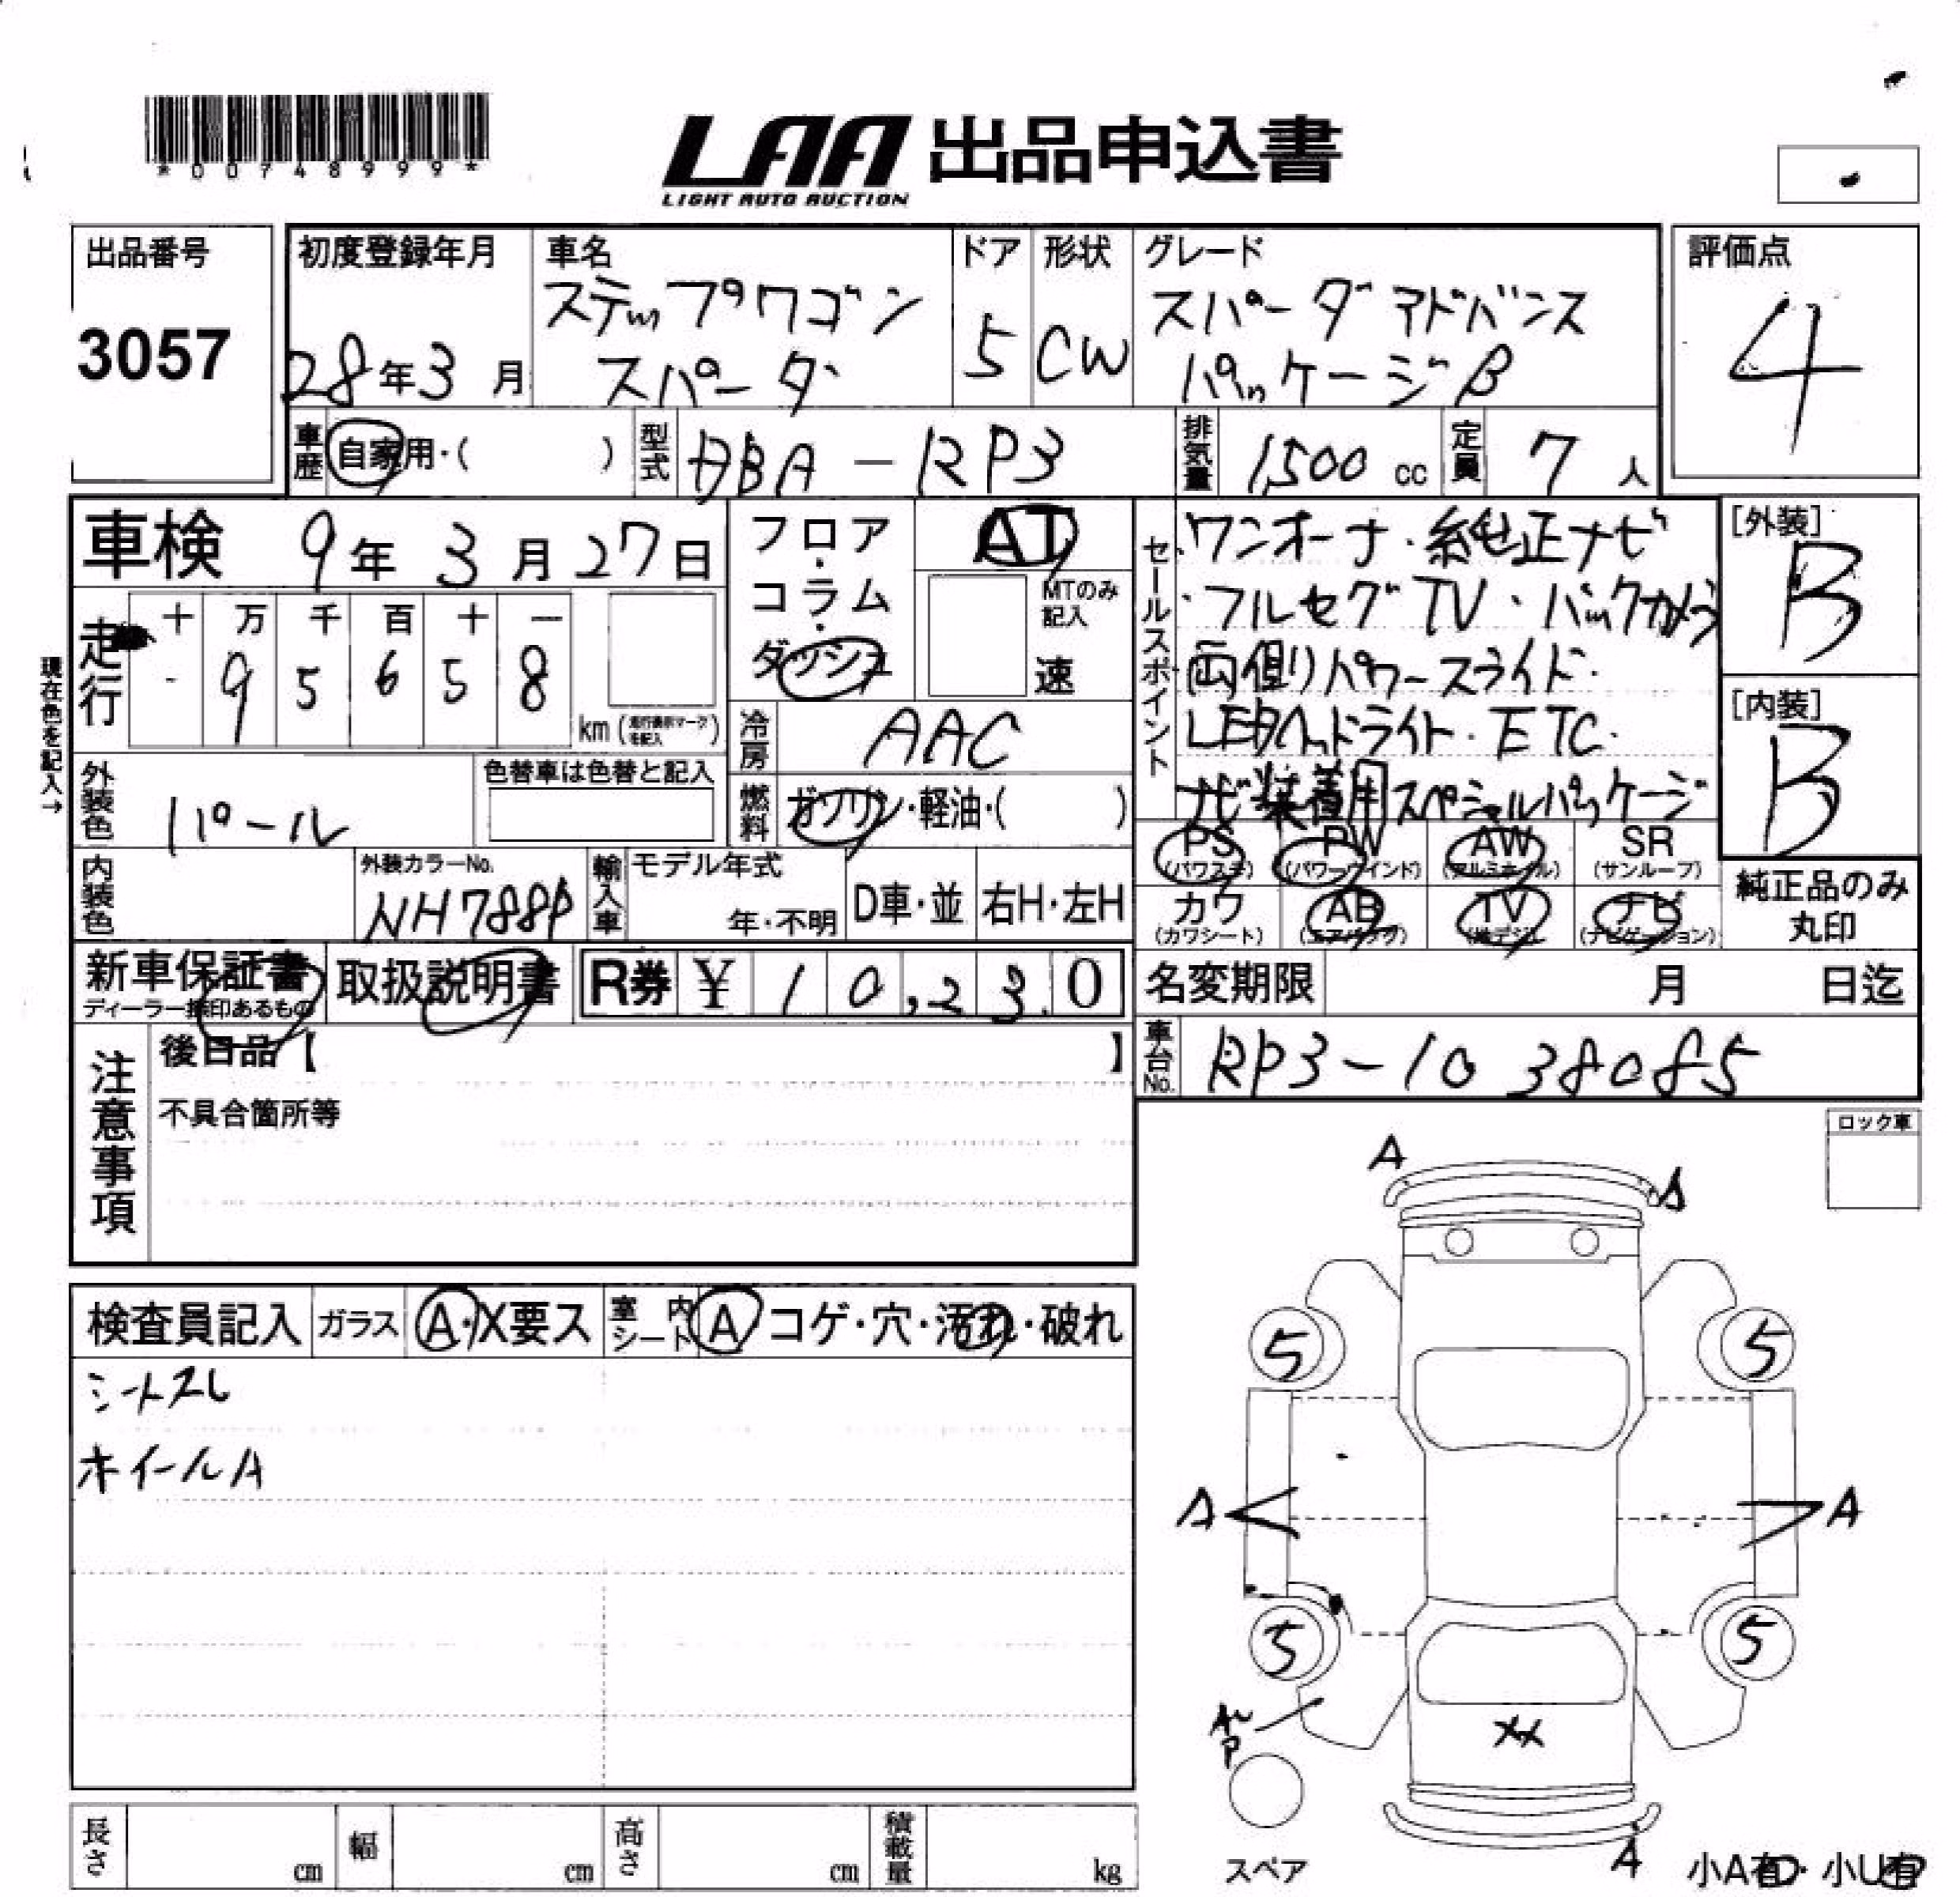 *00748999*
LAA 出品申込書
LIGHT AUTO AUCTION
出品番号
3057
初度登録年月
28年3月
車名
ステップワゴン
スパーダ
ドア
5
形状
CW
グレード
スパーダ アドバンス
パッケージβ
評価点
4
車歴 自家用・( )
型式 DBA-RP3
排気量 1,500 cc
定員 7人
車検 9年3月27日
フロア・コラム・ダッシュ
AT
MTのみ記入
速
走行
十 万 千 百 十 一
- 9 5 6 5 8
km (走行表示マークを記入)
現在色を記入→
冷房 AAC
燃料 ガソリン・軽油・( )
外装色 パール
色替車は色替と記入
内装色
外装カラーNo.
NH788P
輸入車
モデル年式
年・不明
D車・並
右H・左H
セールスポイント
・ワンオーナ・純正ナビ
・フルセグTV・バックカメラ
両側パワースライド・
LEDヘッドライト・ETC・
ナビ装着用スペシャルパッケージ
[外装]
B
[内装]
B
PS (パワステ)
PW (パワーウインド)
AW (アルミホイル)
SR (サンルーフ)
カワ (カワシート)
AB (エアバッグ)
TV (地デジ)
ナビ (ナビゲーション)
純正品のみ
丸印
新車保証書
ディーラー捺印あるもの
取扱説明書
R券 ¥10,230
名変期限 月 日迄
車台No. RP3-1038085
注意事項
後日品【 】
不具合箇所等
ロック車
検査員記入
ガラス A・X要ス
室内シート A コゲ・穴・汚れ・破れ
シートスレ
ホイールA
A
A
5
5
A
A
5
5
P
XX
A
スペア
小A有・小U有
長さ cm
幅 cm
高さ cm
積載量 kg